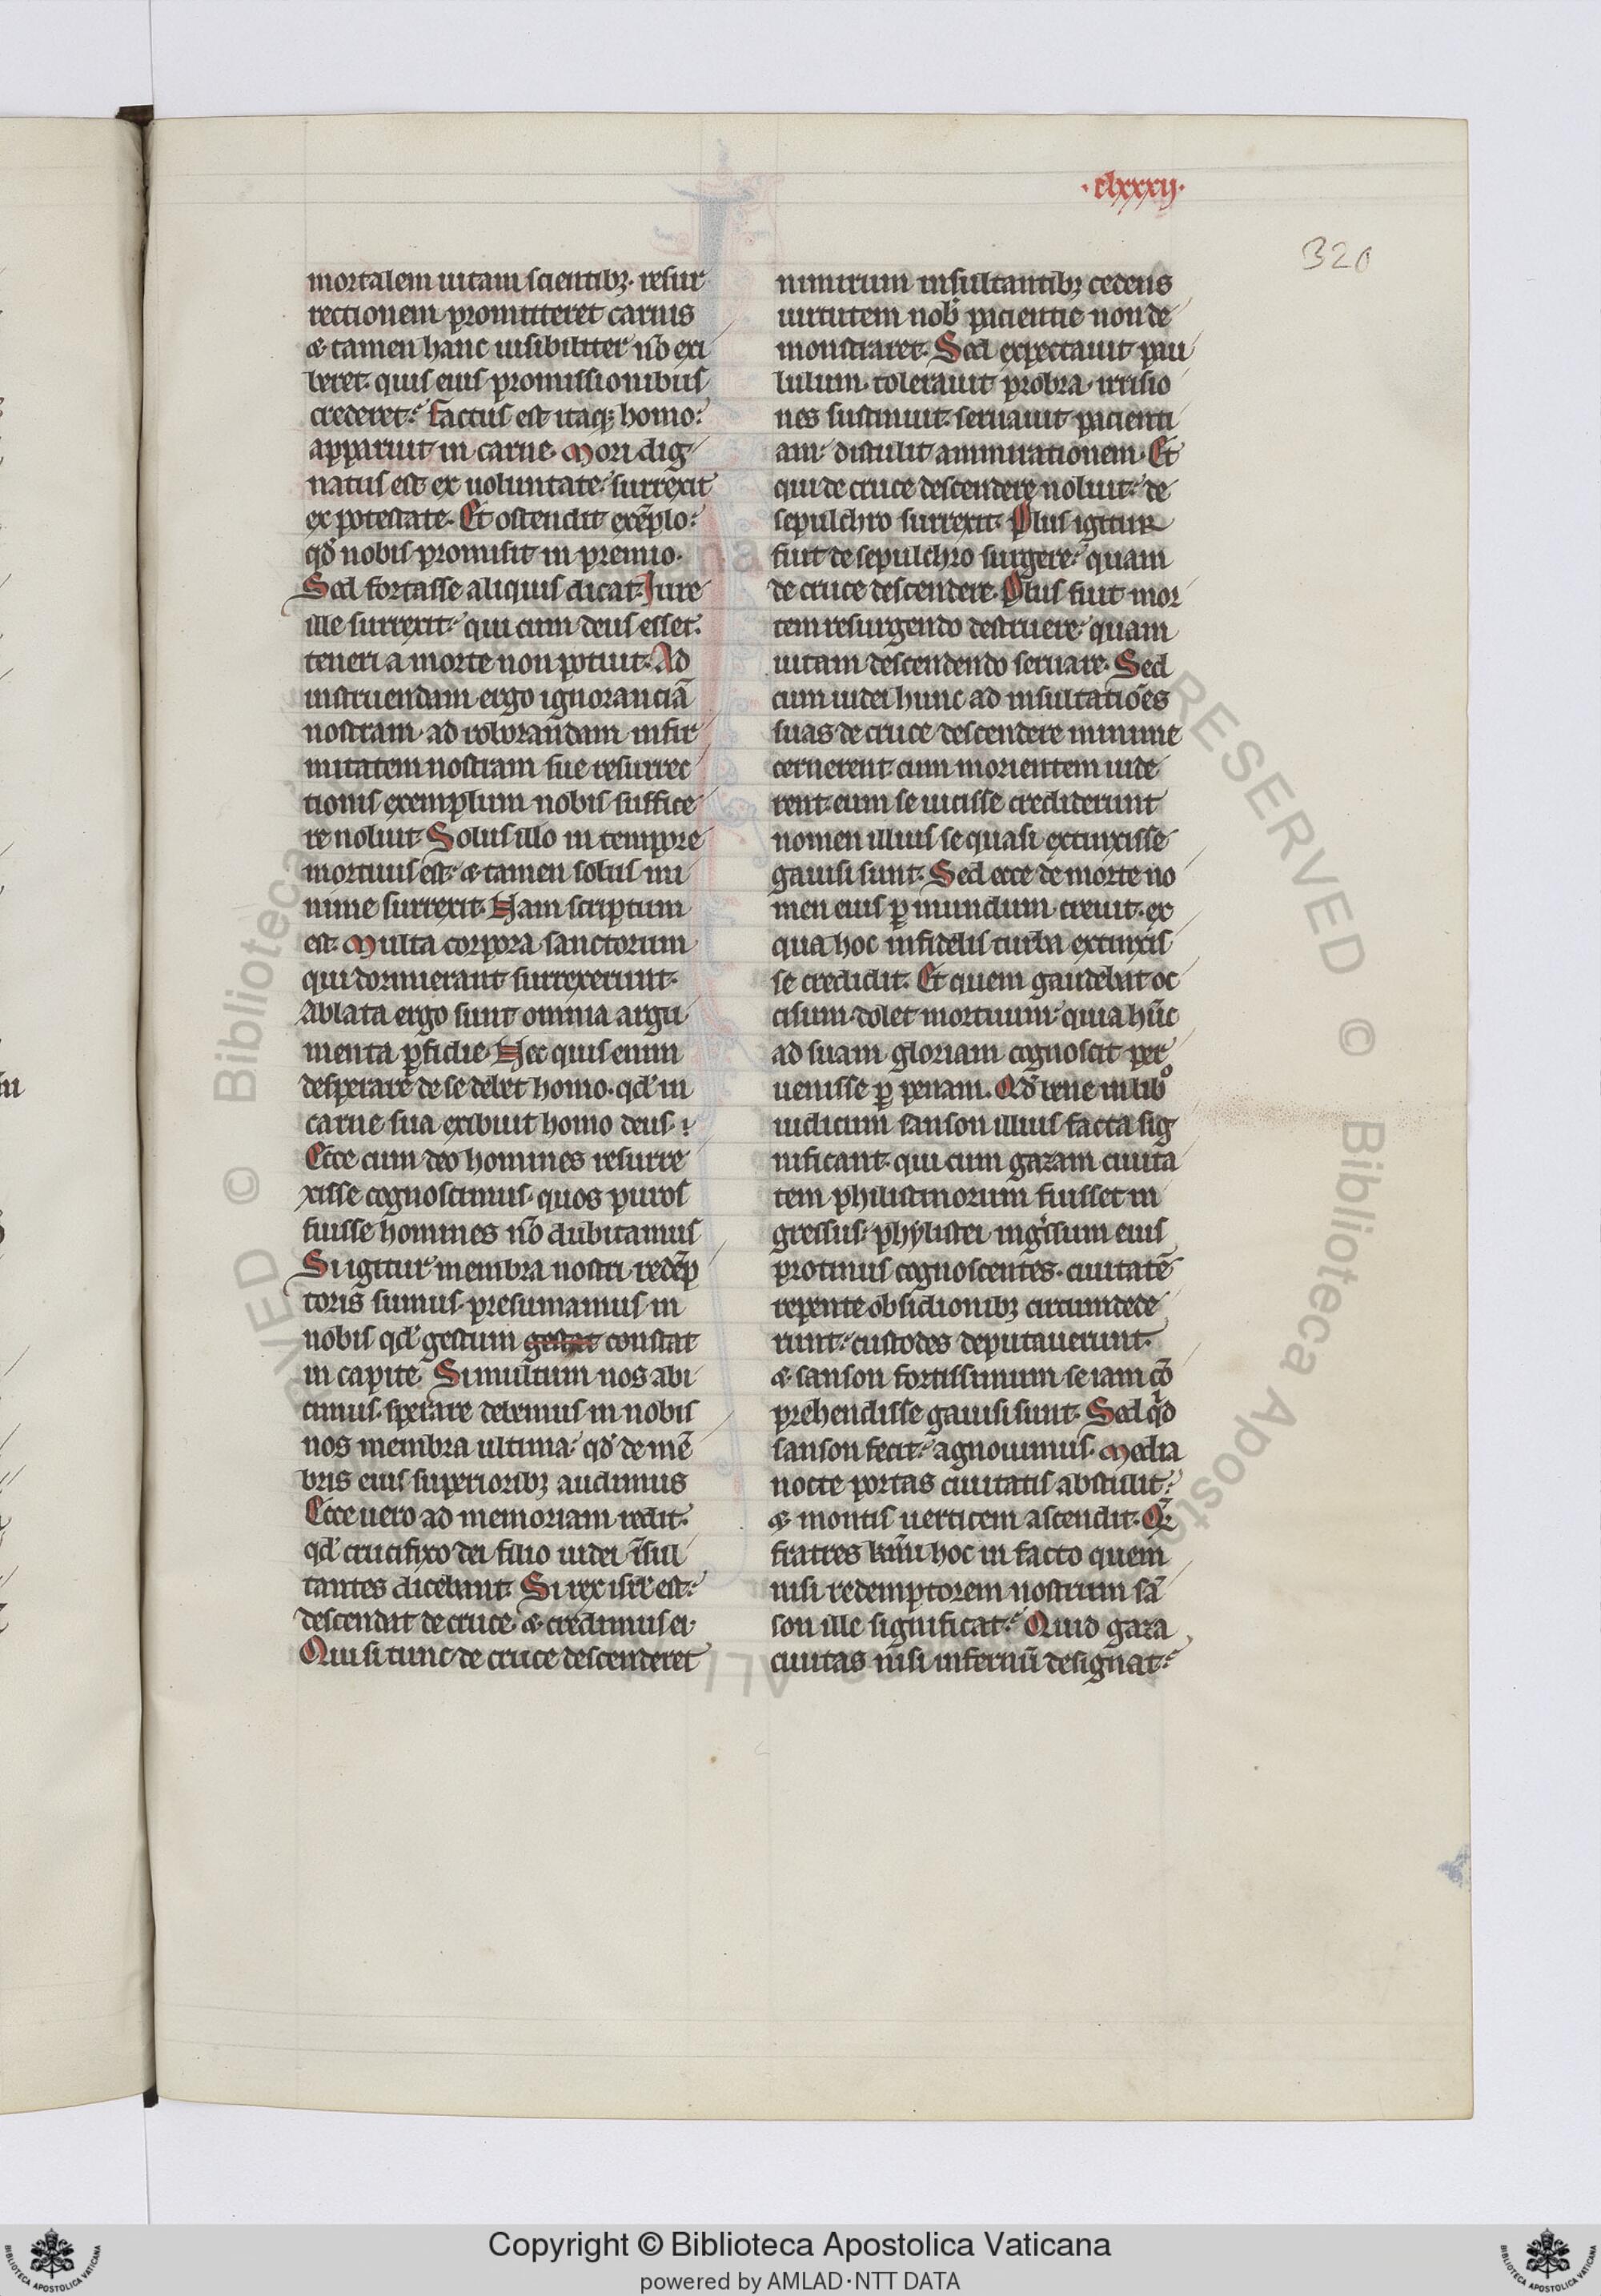 ·clxxxij·
320
mortalem uitam scientibꝫ· resur
rectionem promitteret carnis
⁊ tamen hanc uisibiliter nō exi
beret· quis eius promissionibus
crederet? Factus est itaqꝫ homo:
apparuit in carne· Mori dig
natus est ex uoluntate· surrexit
ex potestate· Et ostendit exēplo:
qd̓ nobis promisit in premio·
Sed fortasse aliquis dicat· Iure
ille surrexit· qui cum deus esset·
teneri a morte non potuit· Ad
instruendam ergo ignoranciā
nostram· ad roborandam infir
mitatem nostram sue resurrec
tionis exemplum nobis suffice
re noluit· Solus illo in tempore
mortuus est· ⁊ tamen solus mi
nime surrexit· Nam scriptum
est· Multa corpora sanctorum
qui dormierant surrexerunt·
Ablata ergo sunt omnia argu
menta ꝑfidie· Nec quis enim
desperare de se debet homo· qd̓ in
carne sua exibuit homo deus·
Ecce cum deo homines resurre
xisse cognoscimus· quos puros
fuisse homines nō dubitamus
Si igitur membra nostri redēp
toris sumus· presumamus in
nobis qd̓ gestum gestat constat
in capite· Si multum nos abi
cimus· sperare debemus in nobis
nos membra ultima· qd̓ de mē
bris eius superioribꝫ audimus
Ecce uero ad memoriam redit·
qd̓ crucifixo dei filio iudei īsul
tantes dicebant· Si rex isrl̓ est·
descendat de cruce· ⁊ credimus ei·
Qui si tunc de cruce descenderet
nimirum insultantibꝫ cedens
uirtutem nob̓ pacientie non de
monstraret· Sed expectauit pau
lulum· tolerauit probra· irrisio
nes sustinuit· seruauit pacienti
am· distulit ammirationem· Et
qui de cruce descendere noluit· de
sepulchro surrexit· Plus igitur
fuit de sepulchro surgere· quam
de cruce descendere· Plus fuit mor
tem resurgendo destruere· quam
uitam descendendo seruare· Sed
cum iudei hunc ad insultatiōes
suas de cruce descendere minime
cernerent· cum morientem uide
rent· eum se uicisse crediderunt
nomen illius se quasi extinxisse
gauisi sunt· Sed ecce de morte no
men eius ꝑ mundum creuit· ex
qua hoc infidelis turba extinxis
se credidit· Et quem gaudebat oc
cisum· dolet mortuum· quia hūc
ad suam gloriam cognoscit per
uenisse ꝑ penam· Qd̓ bene in libº
iudicum sanson illius facta sig
nificant· qui cum gazam ciuita
tem philistinorum fuisset in
gressus· phylistei ingͥssum eius
protinus cognoscentes· ciuitatē
repente obsidionibꝫ circumdede
runt· custodes deputauerunt·
⁊ sanson fortissimum se iam cō
prehendisse gauisi sunt· Sed qͥd
sanson fecit· agnouimus· Media
nocte portas ciuitatis abstulit·
⁊ montis uerticem ascendit· Q̄
fratres kr̄mi hoc in facto quem
nisi redemptorem nostrum sā
son ille significat? Quid gaza
ciuitas nisi infernū designat?
Copyright © Biblioteca Apostolica Vaticana
powered by AMLAD·NTT DATA